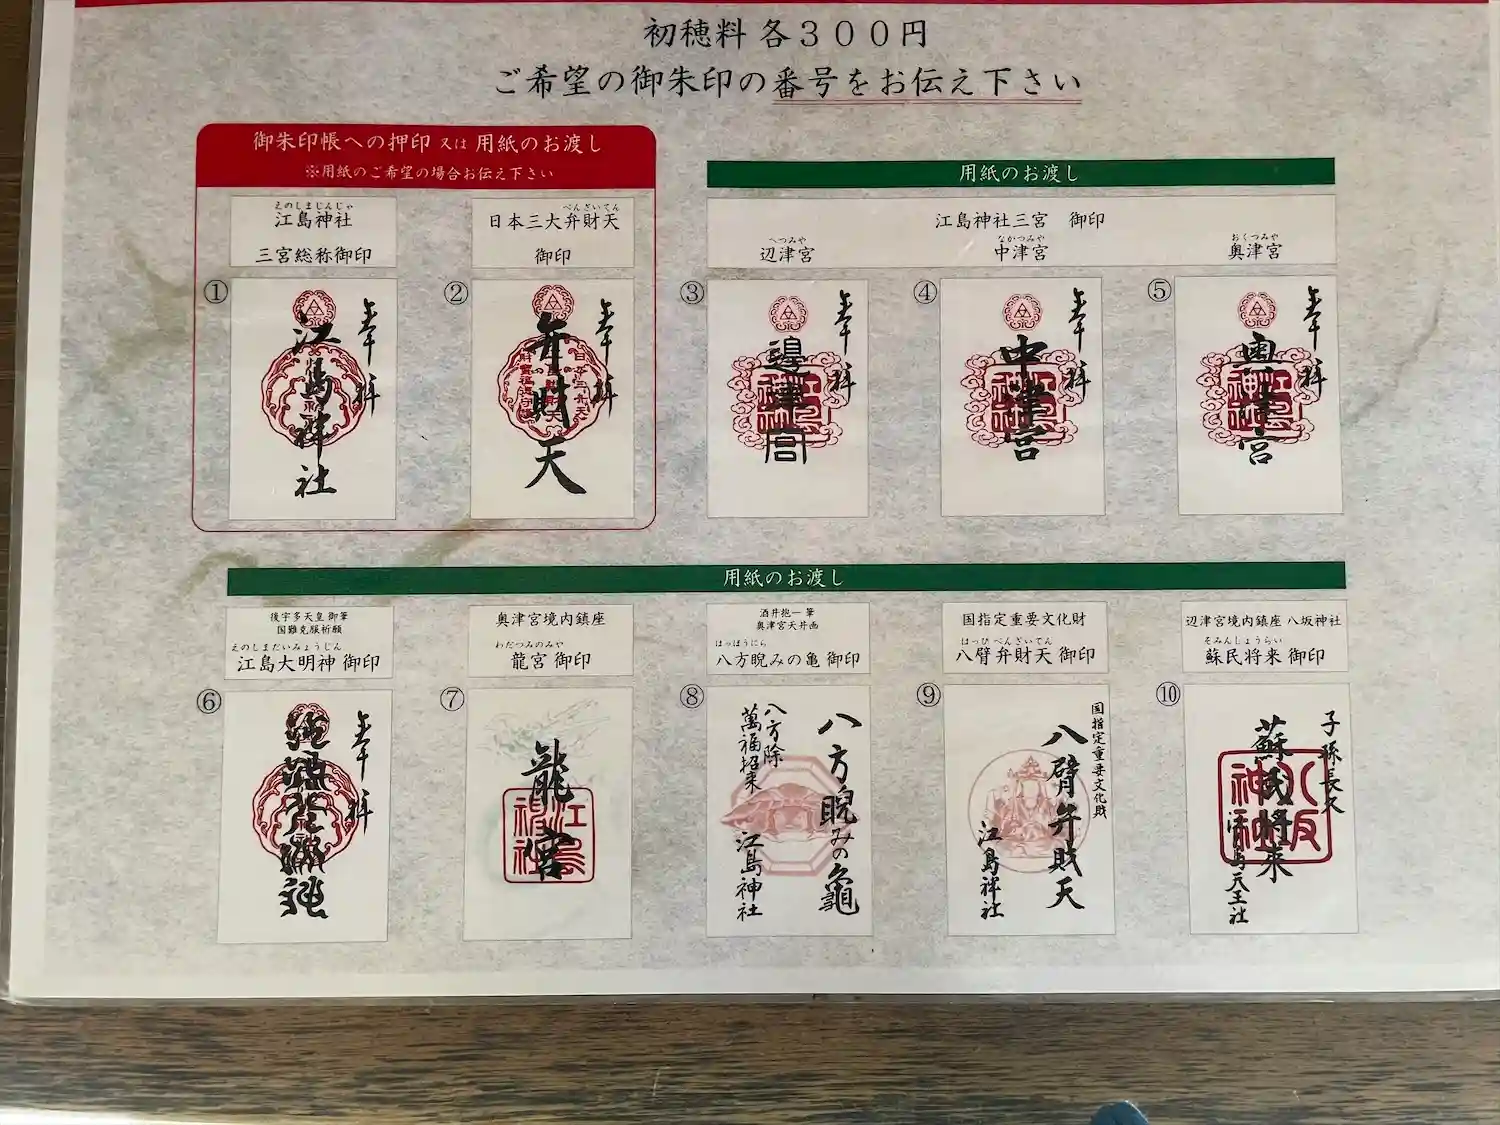 初穂料 各３００円
ご希望の御朱印の番号をお伝え下さい
御朱印帳への押印 又は 用紙のお渡し
※用紙のご希望の場合お伝え下さい
えのしまじんじゃ
江島神社
三宮総称御印
べんざいてん
日本三大弁財天
御印
①
奉拝
江島神社
②
奉拝
弁財天
用紙のお渡し
江島神社三宮 御印
へつみや
辺津宮
なかつみや
中津宮
おくつみや
奥津宮
③
奉拝
邊津宮
④
奉拝
中津宮
⑤
奉拝
奥津宮
用紙のお渡し
後宇多天皇 御筆
国難克服祈願
えのしまだいみょうじん
江島大明神 御印
奥津宮境内鎮座
わだつみのみや
龍宮 御印
酒井抱一 筆
奥津宮天井画
はっぽうにら
八方睨みの亀 御印
国指定重要文化財
はっぴ べんざいてん
八臂弁財天 御印
辺津宮境内鎮座 八坂神社
そみんしょうらい
蘇民将来 御印
⑥
奉拝
⑦
龍宮
江島神社
⑧
八方睨みの龜
八方除
萬福招来
江島神社
⑨
国指定重要文化財
八臂弁財天
江島神社
⑩
子孫長久
蘇民将来
八坂神社
天王社